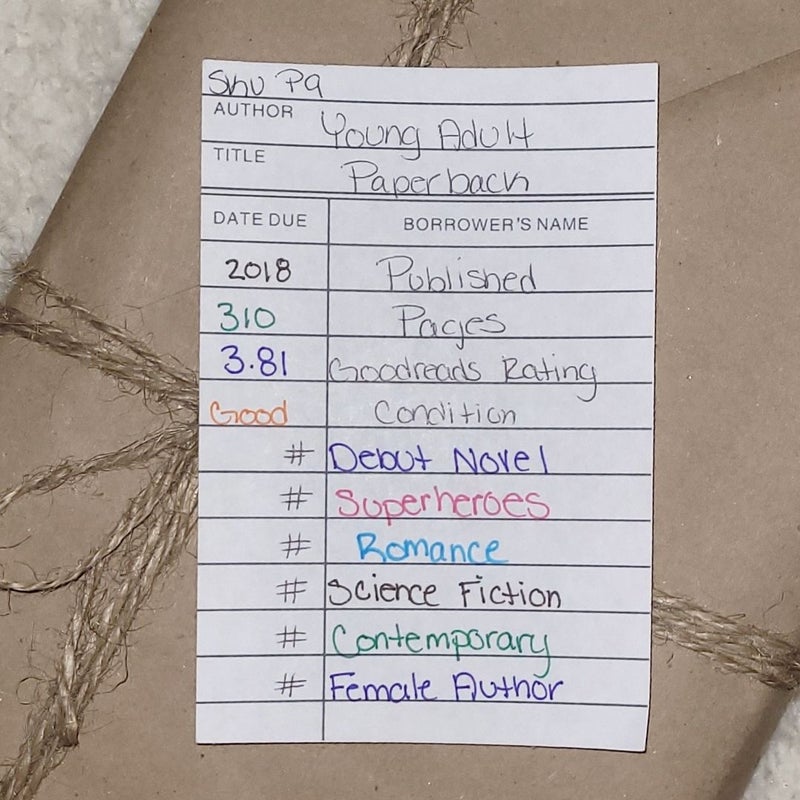 Shu P9
AUTHOR Young Adult
TITLE Paperback
DATE DUE BORROWER'S NAME
2018 Published
310 Pages
3.81 Goodreads Rating
Good Condition
# Debut Novel
# Superheroes
# Romance
# Science Fiction
# Contemporary
# Female Author